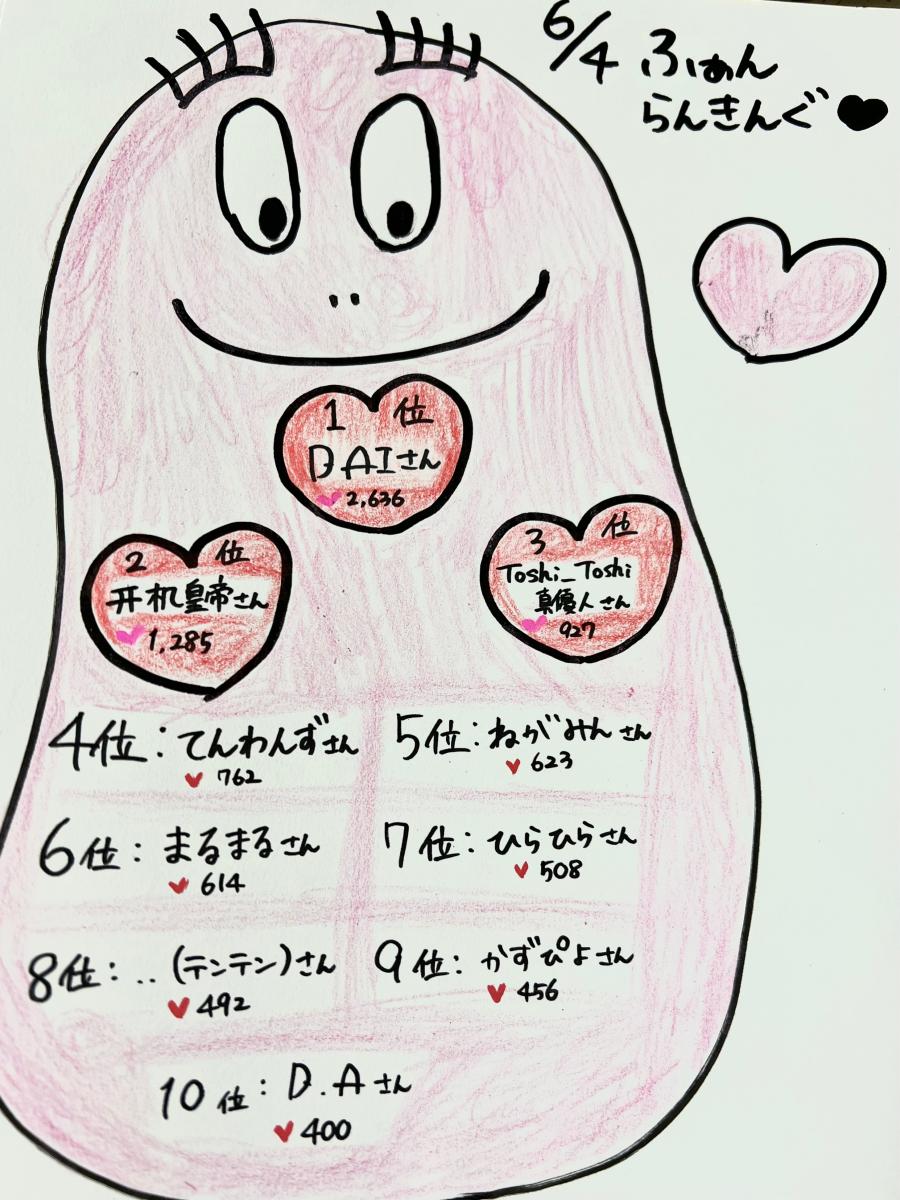 6/4 ふぁん
らんきんぐ♥
1位
DAIさん
2,636
2位
开机皇帝さん
1,285
3位
Toshi_Toshi
真優人さん
927
4位:てんわんずさん
♥ 762
5位:ねがみんさん
♥ 623
6位:まるまるさん
♥ 614
7位:ひらひらさん
♥ 508
8位:..(テンテン)さん
♥ 492
9位:かずぴよさん
♥ 456
10位:D.Aさん
♥ 400